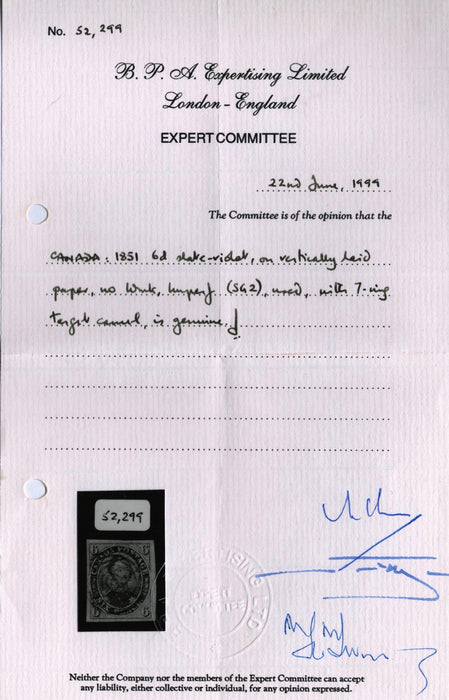 No. 52,299
B. P. A. Expertising Limited
London - England
EXPERT COMMITTEE
22nd June, 1999
The Committee is of the opinion that the
CANADA: 1851 6d slate-violet, on vertically laid
paper, no wmk, imperf (SG2), used, with 7-ring
target cancel, is genuine.
52,299
CANADA POSTAGE
Neither the Company nor the members of the Expert Committee can accept
any liability, either collective or individual, for any opinion expressed.